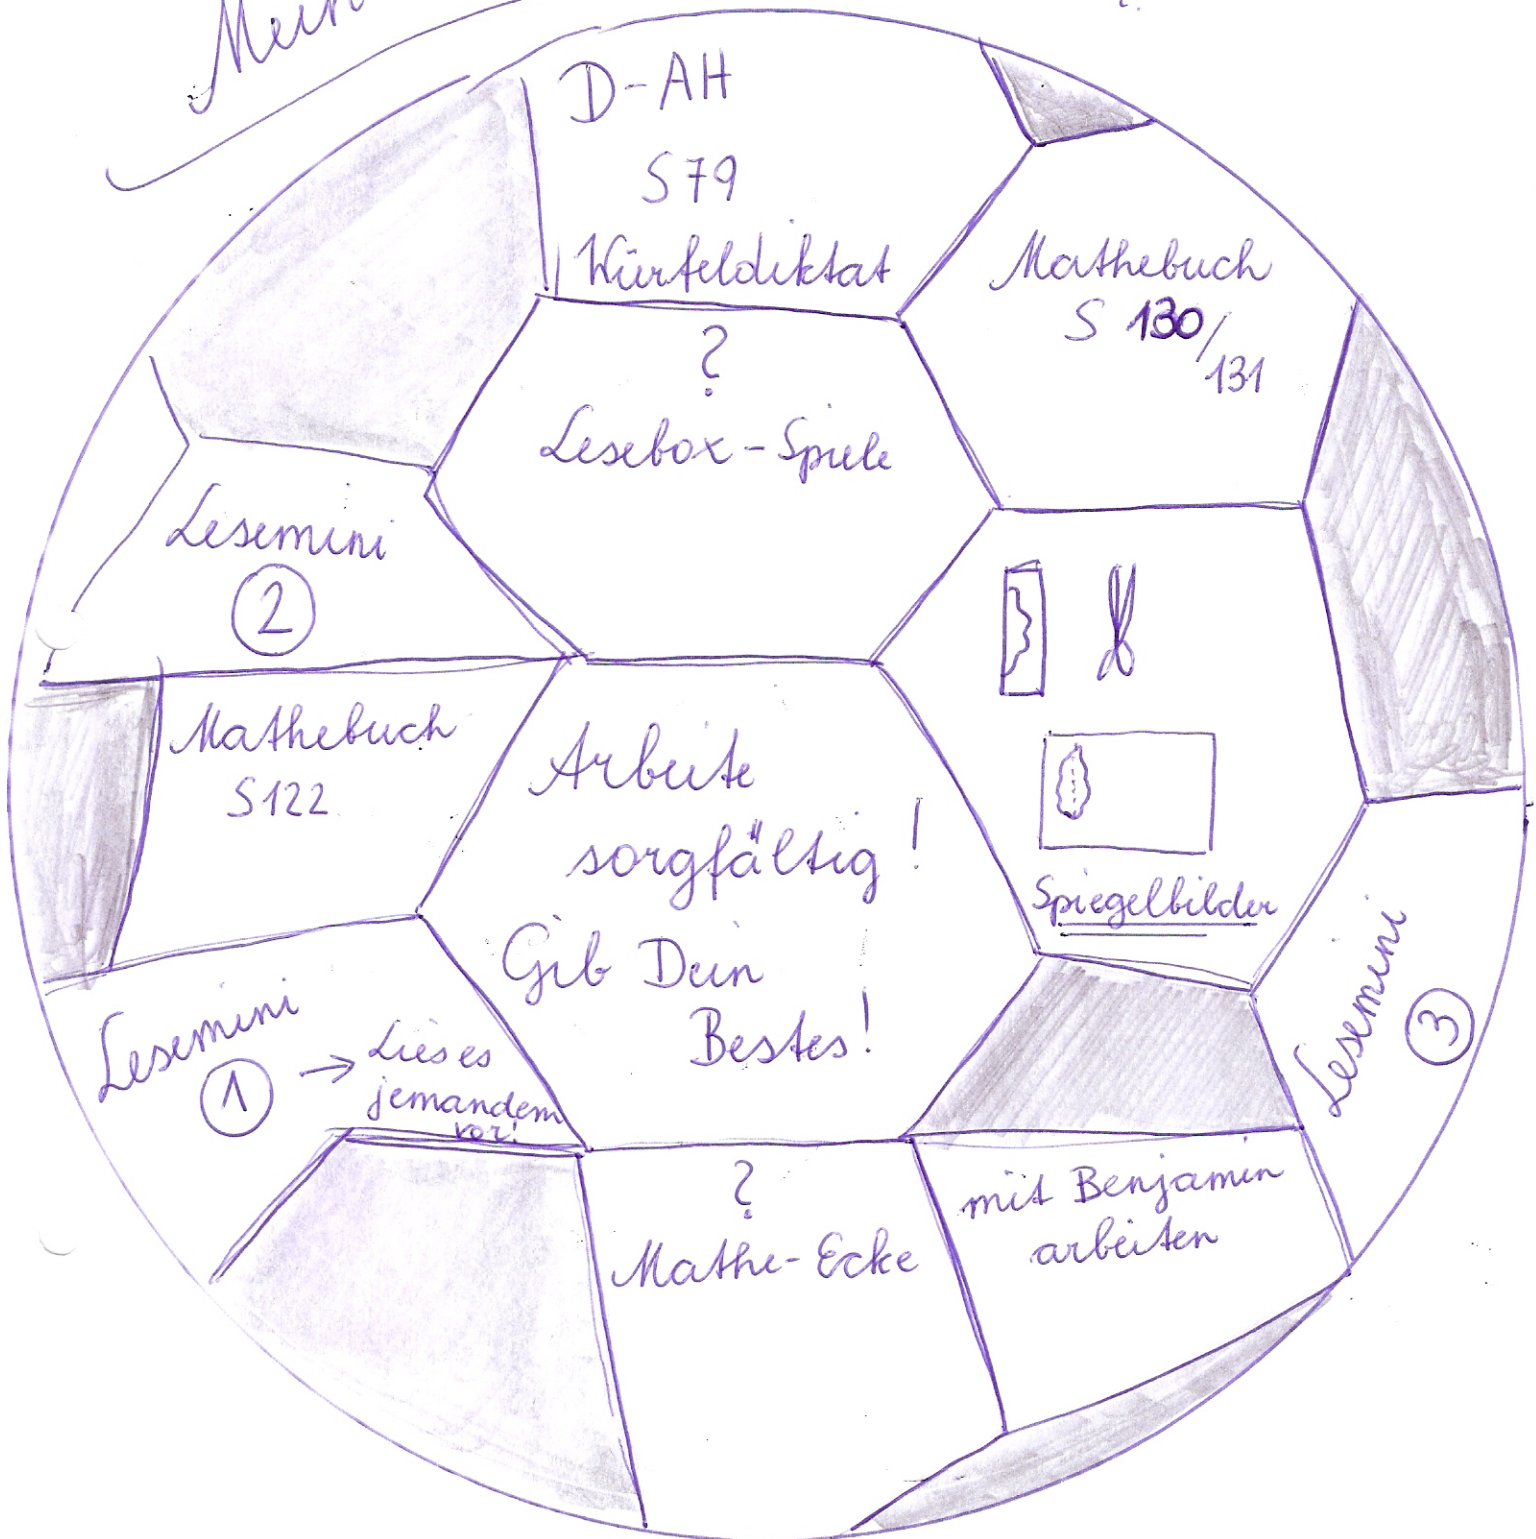 Mein
D-AH
S 79
Würfeldiktat
Mathebuch
S 130/
131
?
Lesebox-Spiele
Lesemini
2
Mathebuch
S 122
Arbeite
sorgfältig!
Gib Dein
Bestes!
Spiegelbilder
Lesemini
3
Lesemini
1 → Lies es
jemandem
vor!
?
Mathe-Ecke
mit Benjamin
arbeiten